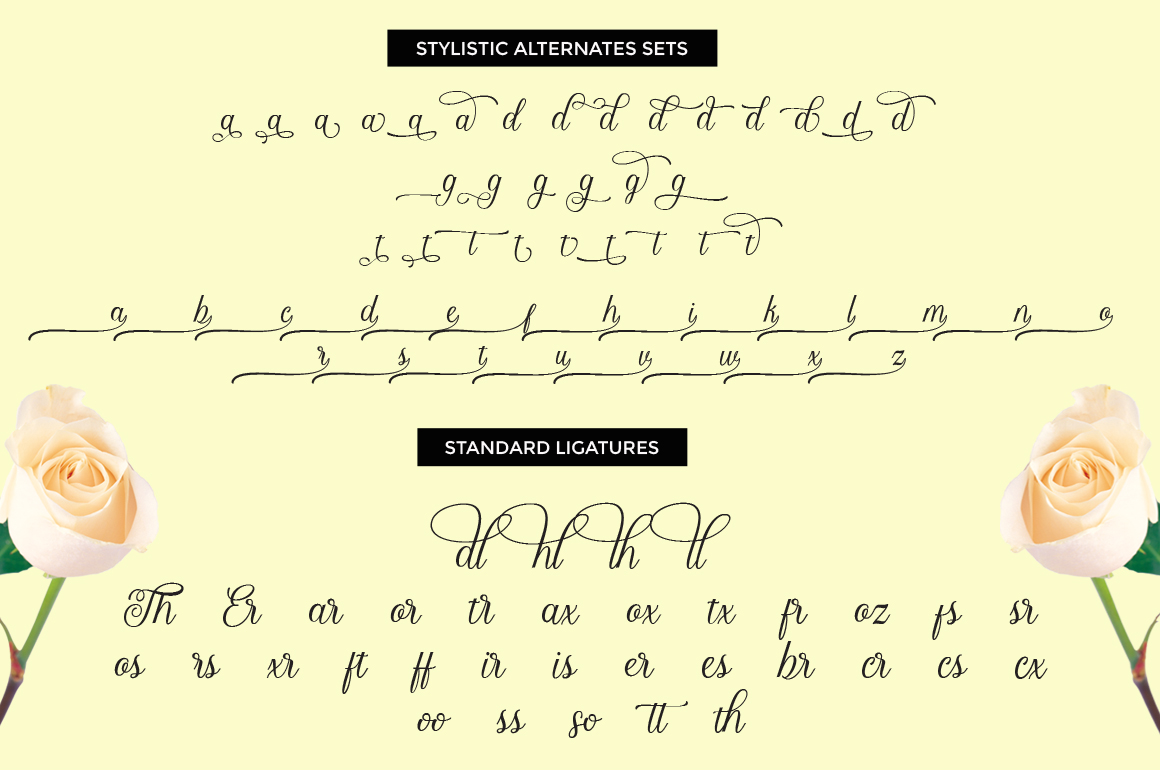 STYLISTIC ALTERNATES SETS
a a a a a a d d d d d d d d d
g g g g g g
t t t t t t t t t
a b c d e f h i k l m n o
r s t u v w x z
STANDARD LIGATURES
dl hl lh ll
Th Er ar or tr ax ox tx fr oz fs sr
os rs xr ft ff ir is er es br cr cs cx
oo ss so tt th